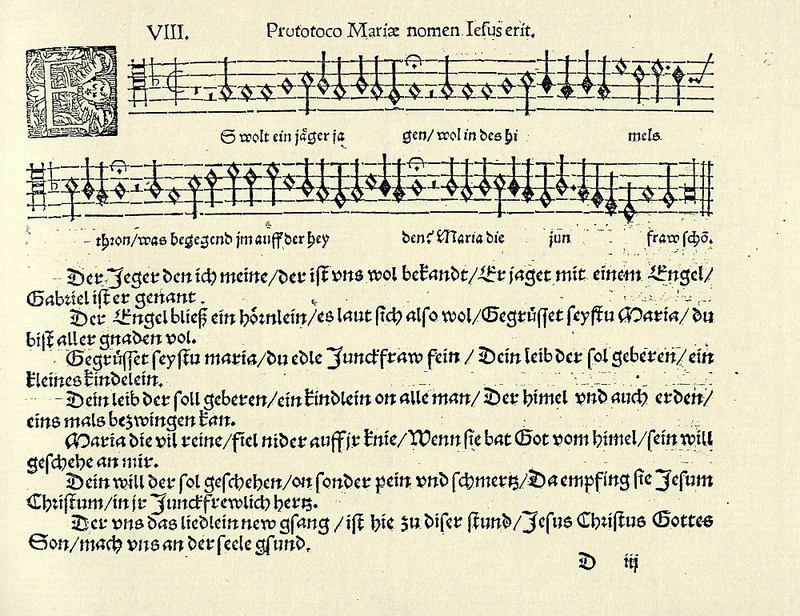 VIII. Prototoco Mariæ nomen Iesus erit.
ES wolt ein jäger ja gen/ wol in des hi mels
thron/was begegend jm auff der hey den? Maria die jun fraw schö.
Der Jeger den ich meine/der ist vns wol bekandt/Er jaget mit einem Engel/
Gabriel ist er genant.
Der Engel bließ ein hörnlein/es laut sich also wol/Gegrüsset seystu Maria/ du
bist aller gnaden vol.
Gegrüsset seystu maria/du edle Junckfraw fein / Dein leib der sol geberen/ ein
kleines kindelein.
Dein leib der soll geberen/ein kindlein on alle man/ Der himel vnd auch erden/
eins mals bezwingen kan.
Maria die vil reine/fiel nider auff jr knie/Wenn sie bat Got vom himel/sein will
geschehe an mir.
Dein will der sol geschehen/on sonder pein vnd schmertz/Da empfing sie Jesum
Christum/in jr Junckfrewlich hertz.
Der vns das liedlein new gsang / ist hie zu diser stund/Jesus Christus Gottes
Son/mach vns an der seele gsund.
D iij